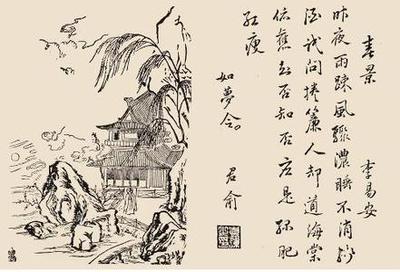 春景 李易安
昨夜雨踈風驟濃睡不消殘
酒試問捲簾人却道海棠
依舊知否知否應是綠肥
紅瘦
如夢令
君俞